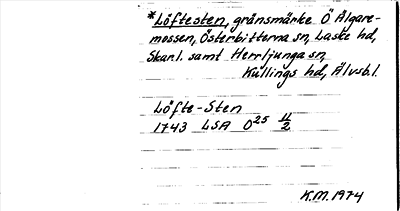 *Löftesten, gränsmärke Ö Älgare-
mossen, Österbitterna sn, Laske hd,
Skarl. samt Herrljunga sn,
Kullings hd, Älvsb.l.
Löfte-Sten
1743 LSA O25 11/2
K.M. 1974